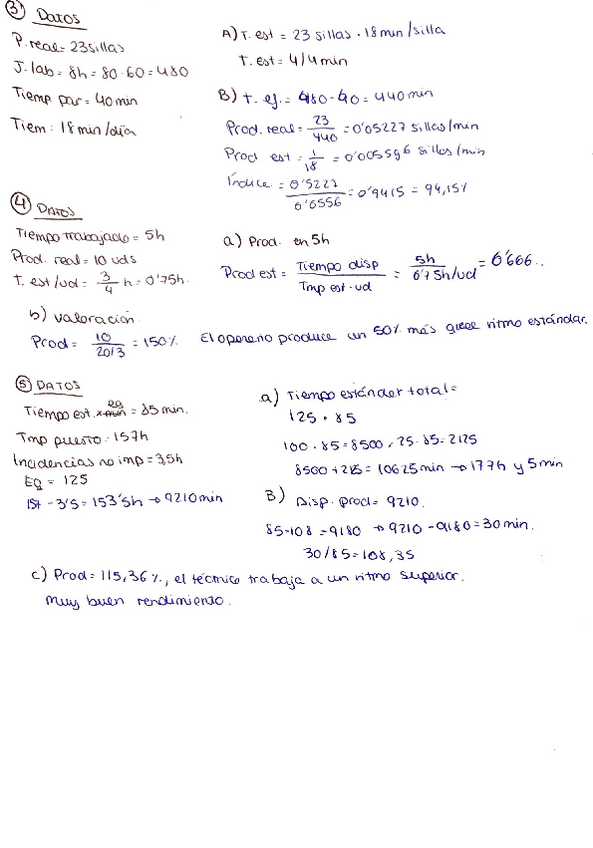 ③ Datos
P. real = 23 sillas
J. lab = 8h = 80·60 = 480
Tiemp par = 40 min
Tiem: 18 min/día
A) T. est = 23 sillas · 18 min/silla
T. est = 414 min
B) t. ej. = 480 - 40 = 440 min
Prod. real = 23/440 = 0'05227 sillas/min
Prod est = 1/18 = 0'005556 sillas/min
Índice = 0'5227/0'0556 = 0'9415 = 94,15%
④ Datos
Tiempo trabajado = 5h
Prod. real = 10 uds
T. est/ud = 3/4 h = 0'75h.
a) Prod. en 5h
Prod est = Tiempo disp/Tmp est·ud = 5h/0'75h/ud = 6'666..
b) valoración
Prod = 10/20/3 = 150%. El operario produce un 50% más ritmo estándar.
⑤ DATOS
Tiempo est. eq = 85 min.
Tmp puesto: 157h
Incidencias no imp = 3,5h
EQ = 125
157 - 3'5 = 153'5h → 9210 min
a) Tiempo estánder total =
125 · 85
100 · 85 = 8500, 25·85 = 2125
8500 + 2125 = 10625 min → 177h y 5 min
B) Disp. prod = 9210.
85·108 = 9180 → 9210 - 9180 = 30 min.
30/85 = 108,35
c) Prod = 115,36%, el técnico trabaja a un ritmo superior.
Muy buen rendimiento.